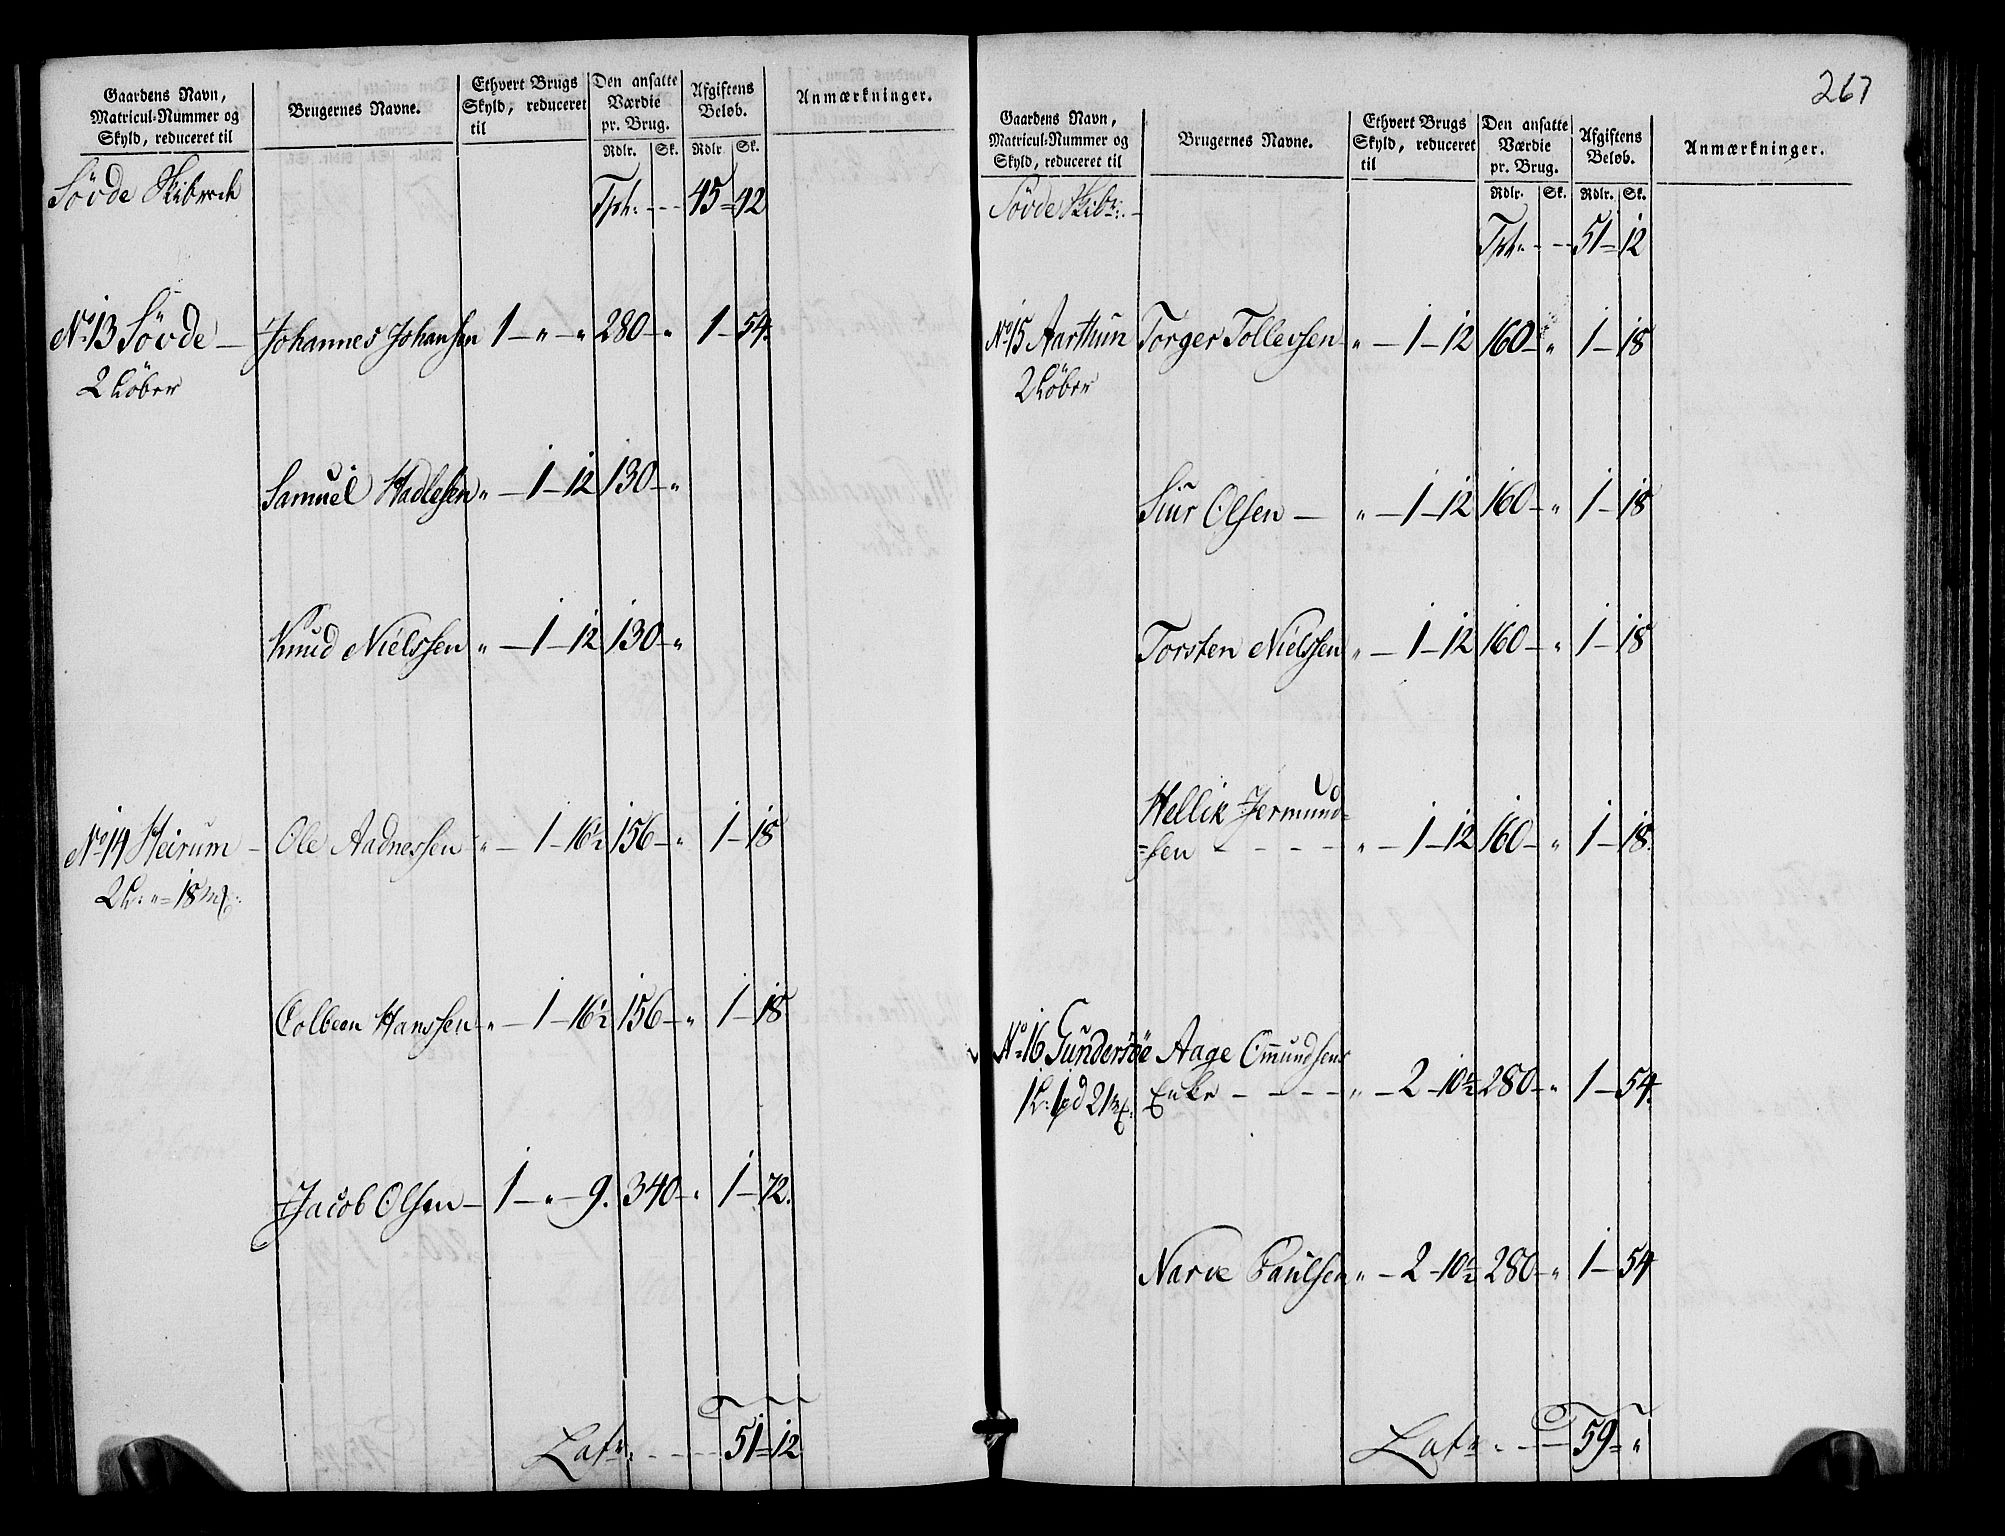 Gaardens Navn,
Matricul-Nummer og
Skyld, reduceret til
Brugernes Navne.
Ethvert Brugs
Skyld, reduceret
til
Den ansatte
Værdie
pr. Brug.
Rdlr. Sk.
Afgiftens
Beløb.
Rdlr. Sk.
Anmærkninger.
Søvde Skibreede
Tpt. - - - 45 = 42
No 13 Søvde — Johannes Johansen 1 — " — " 280 — " 1 — 54.
2 Løber
Samuel Hadlesen " — 1 — 12 130 — "
Knud Nielssen " — 1 — 12 130 — "
No 14 Heirum — Ole Aadnessen " — 1 — 16½ 156 — " 1 — 18
2 L: " = 18 mk:
Colbeen Hanssen " — 1 — 16½ 156 — " 1 — 18
Jacob Olsen — 1 — " — 9. 340 — " 1 — 72.
Latr. - - - 51 = 12
267
Gaardens Navn,
Matricul-Nummer og
Skyld, reduceret til
Brugernes Navne.
Ethvert Brugs
Skyld, reduceret
til
Den ansatte
Værdie
pr. Brug.
Rdlr. Sk.
Afgiftens
Beløb.
Rdlr. Sk.
Anmærkninger.
Søvde Skibr: —
Tpt. - - - 51 = 12
No 15 Aarthun Torger Tollevsen " — 1 — 12 160 — " 1 — 18
2 Løber
Siur Olsen — " — 1 — 12 160 — " 1 — 18
Torsten Nielssen " — 1 — 12 160 — " 1 — 18
Hellik Jermund=
=sen - - - - " — 1 — 12 160 — " 1 — 18.
No 16 Gundersøe Aage Omundsens
1 L: 1 pd 21 mk: Enke - - - - " — 2 — 10½ 280 — " 1 — 54.
Narve Paulsen " — 2 — 10½ 280 — " 1 — 54
Latr. - - - 59 = "